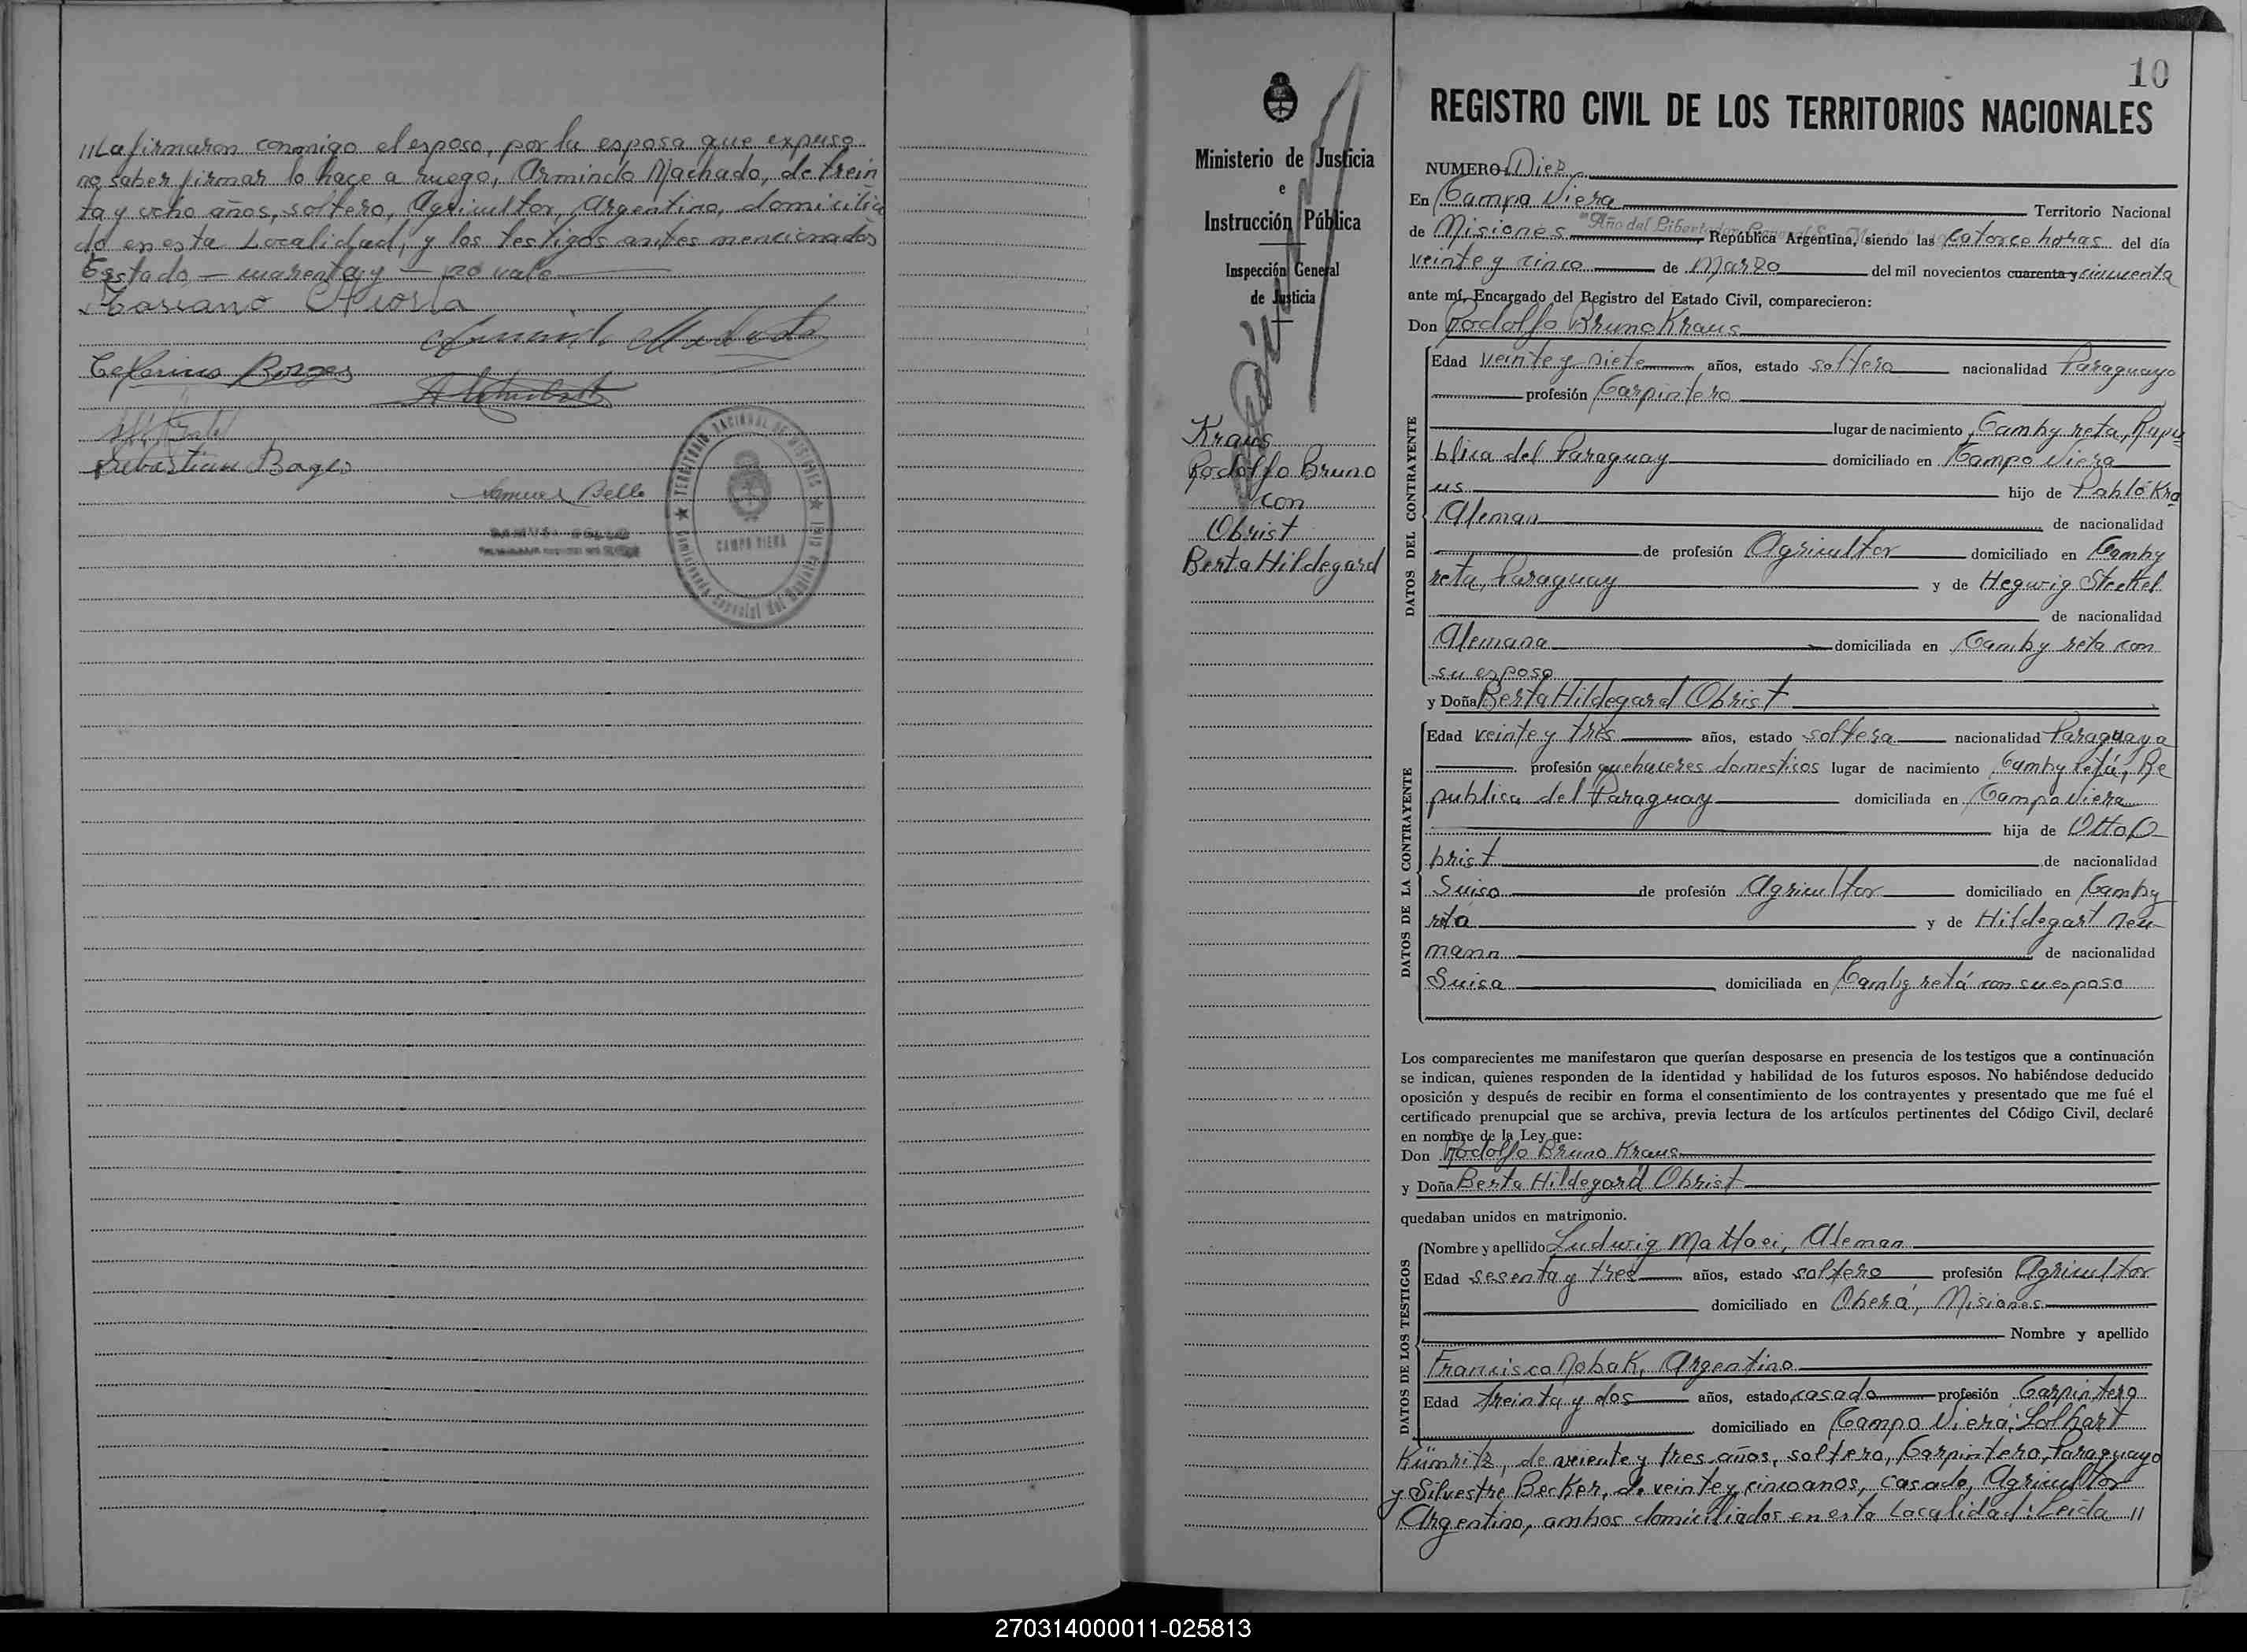 "La firmaron conmigo el esposo, por la esposa que expuso
no saber firmar lo hace a ruego, Armindo Machado, de trein
ta y ocho años, soltero, Agricultor, Argentino, domicilia
do en esta Localidad, y los testigos antes mencionados
Estado — cuarenta y — no vale
Ceferino Borges
Sebastian
Samuel Bello
SAMUEL BELLO
TERRITORIO NACIONAL DE MISIONES
CAMPO VIERA
10
REGISTRO CIVIL DE LOS TERRITORIOS NACIONALES
Ministerio de Justicia
e
Instrucción Pública
Inspección General
de Justicia
Kraus
Rodolfo Bruno
con
Obrist
Berta Hildegard
NUMERO Diez
En Campo Viera Territorio Nacional
"Año del Libertador General San Martín"
de Misiones, República Argentina, siendo las catorce horas del día
veinte y cinco de Marzo del mil novecientos cuarenta y cincuenta
ante mí, Encargado del Registro del Estado Civil, comparecieron:
Don Rodolfo Bruno Kraus
DATOS DEL CONTRAYENTE
Edad veinte y siete años, estado soltero nacionalidad Paraguayo
profesión Carpintero
lugar de nacimiento Camby reta, Repu
blica del Paraguay domiciliado en Campo Viera
us hijo de Pablo Kra
Aleman de nacionalidad
de profesión Agricultor domiciliado en Camby
reta, Paraguay y de Hegwig Steckel
de nacionalidad
Alemana domiciliada en Camby reta con
su esposo
y Doña Berta Hildegard Obrist
DATOS DE LA CONTRAYENTE
Edad veinte y tres años, estado soltera nacionalidad Paraguaya
profesión quehaceres domesticos lugar de nacimiento Camby retá, Re
publica del Paraguay domiciliada en Campo Viera
hija de Otto O
brist de nacionalidad
Suiso de profesión Agricultor domiciliado en Camby
retá y de Hildegart Neu
mann de nacionalidad
Suisa domiciliada en Camby retá con su esposo
Los comparecientes me manifestaron que querían desposarse en presencia de los testigos que a continuación
se indican, quienes responden de la identidad y habilidad de los futuros esposos. No habiéndose deducido
oposición y después de recibir en forma el consentimiento de los contrayentes y presentado que me fué el
certificado prenupcial que se archiva, previa lectura de los artículos pertinentes del Código Civil, declaré
en nombre de la Ley que:
Don Rodolfo Bruno Kraus
y Doña Berta Hildegard Obrist
quedaban unidos en matrimonio.
DATOS DE LOS TESTIGOS
Nombre y apellido Ludwig Mattaei, Aleman
Edad sesenta y tres años, estado soltero profesión Agricultor
domiciliado en Oberá, Misiones
Nombre y apellido
Francisco Nobak, Argentino
Edad treinta y dos años, estado casado profesión Carpintero
domiciliado en Campo Viera; Lolhart
Kümritz, de veiente y tres años, soltero, Carpintero, Paraguayo
y Silvestre Becker, de veinte y cinco anos, casado, Agricultor
Argentino, ambos domiciliados en esta Localidad: Leida "
270314000011-025813